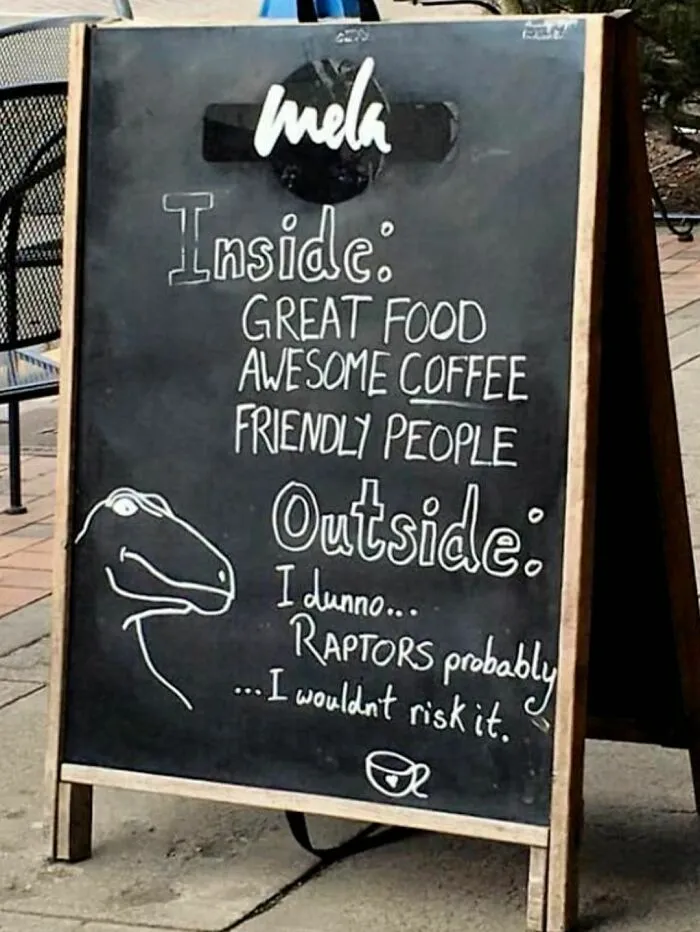 mela
Inside:
GREAT FOOD
AWESOME COFFEE
FRIENDLY PEOPLE
Outside:
I dunno...
RAPTORS probably
...I wouldn't risk it.